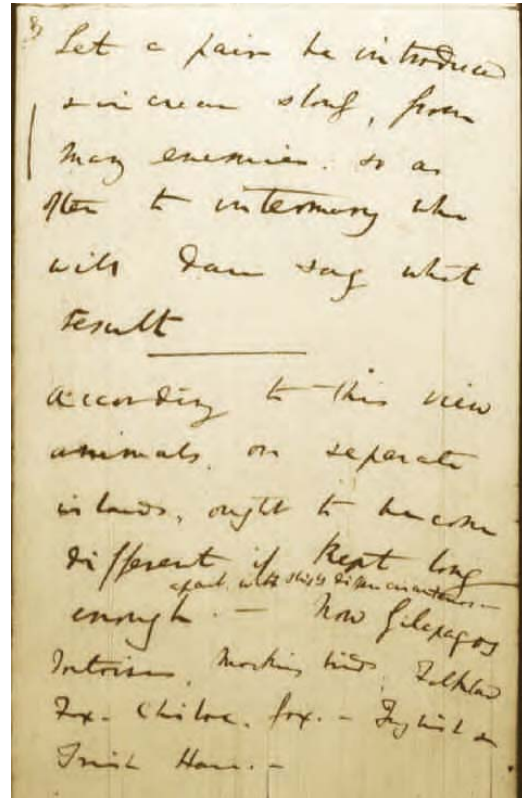 Let a pair be introduced
& increase slowly, from
many enemies, so as
often to intermarry who
will dare say what
result
According to this view
animals, on separate
islands, ought to become
different if kept long
apart, with slightly differen circumstances. —
enough. — Now Galapagos
Tortoises, Mocking birds, Falkland
Fox — Chiloe, fox. — English &
Irish Hare. —